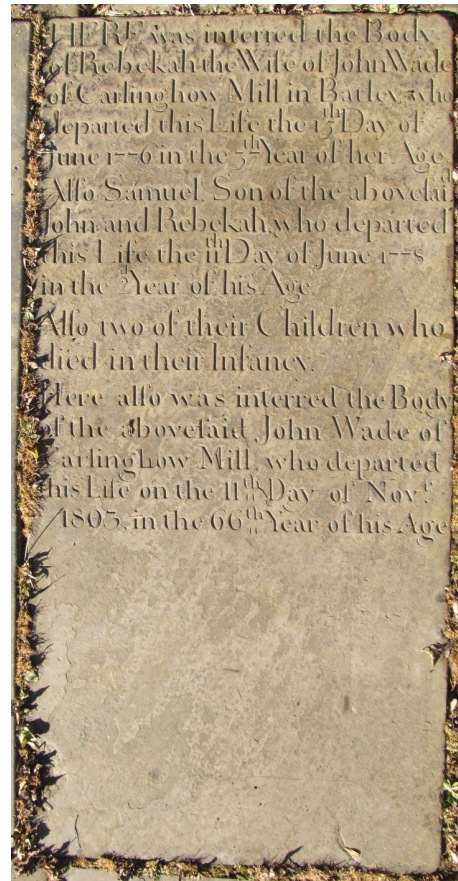 HERE was interred the Body
of Rebekah the Wife of John Wade
of Carlinghow Mill in Batley, who
departed this Life the 15th Day of
June 1776 in the 37th Year of her Age.
Alſo Samuel Son of the aboveſaid
John and Rebekah, who departed
this Life the 11th Day of June 1778
in the 2d Year of his Age.
Alſo two of their Children who
died in their Infancy.
Here alſo was interred the Body
of the aboveſaid John Wade of
Carlinghow Mill, who departed
this Life on the 11th Day of Novr.
1803, in the 66th Year of his Age